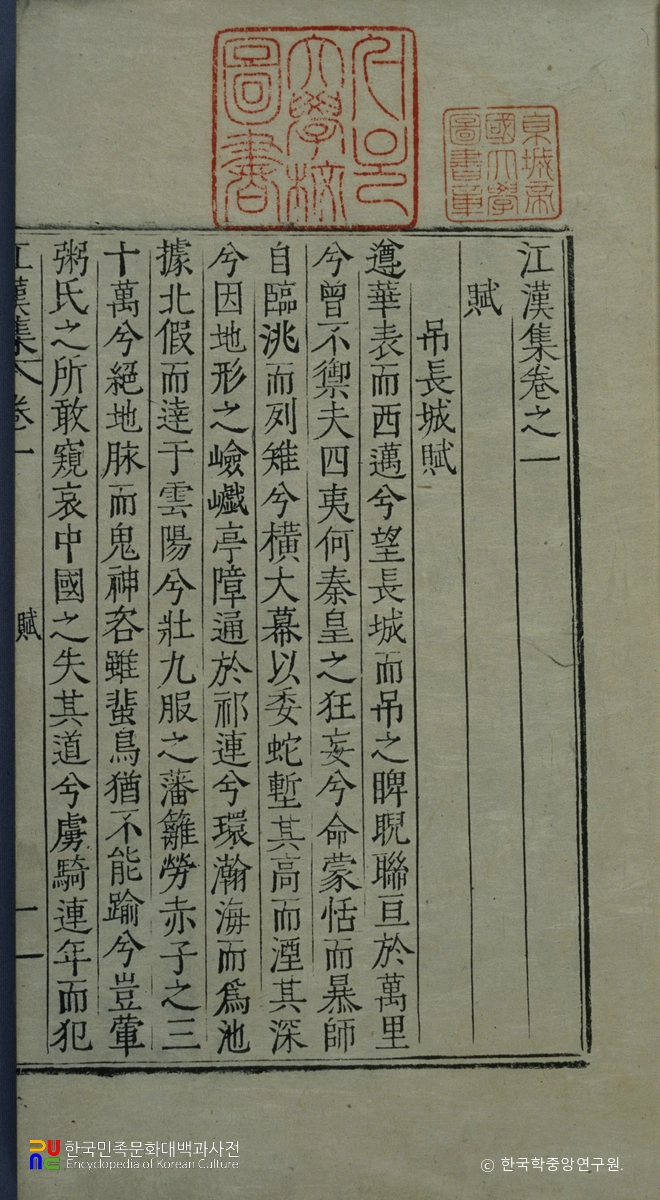 서울大學校圖書
京城帝國大學圖書章
江漢集卷之一
賦
吊長城賦
遵華表而西邁兮望長城而吊之睥睨聯亘於萬里
兮曾不禦夫四夷何秦皇之狂妄兮命蒙恬而暴師
自臨洮而列雉兮橫大幕以委蛇塹其高而湮其深
兮因地形之嶮巇亭障通於祁連兮環瀚海而爲池
據北假而達于雲陽兮壯九服之藩籬勞赤子之三
十萬兮絕地脉而鬼神咨雖蜚鳥猶不能踰兮豈葷
粥氏之所敢窺哀中國之失其道兮虜騎連年而犯
江漢集 卷一 賦 一
한국민족문화대백과사전
Encyclopedia of Korean Culture
© 한국학중앙연구원.